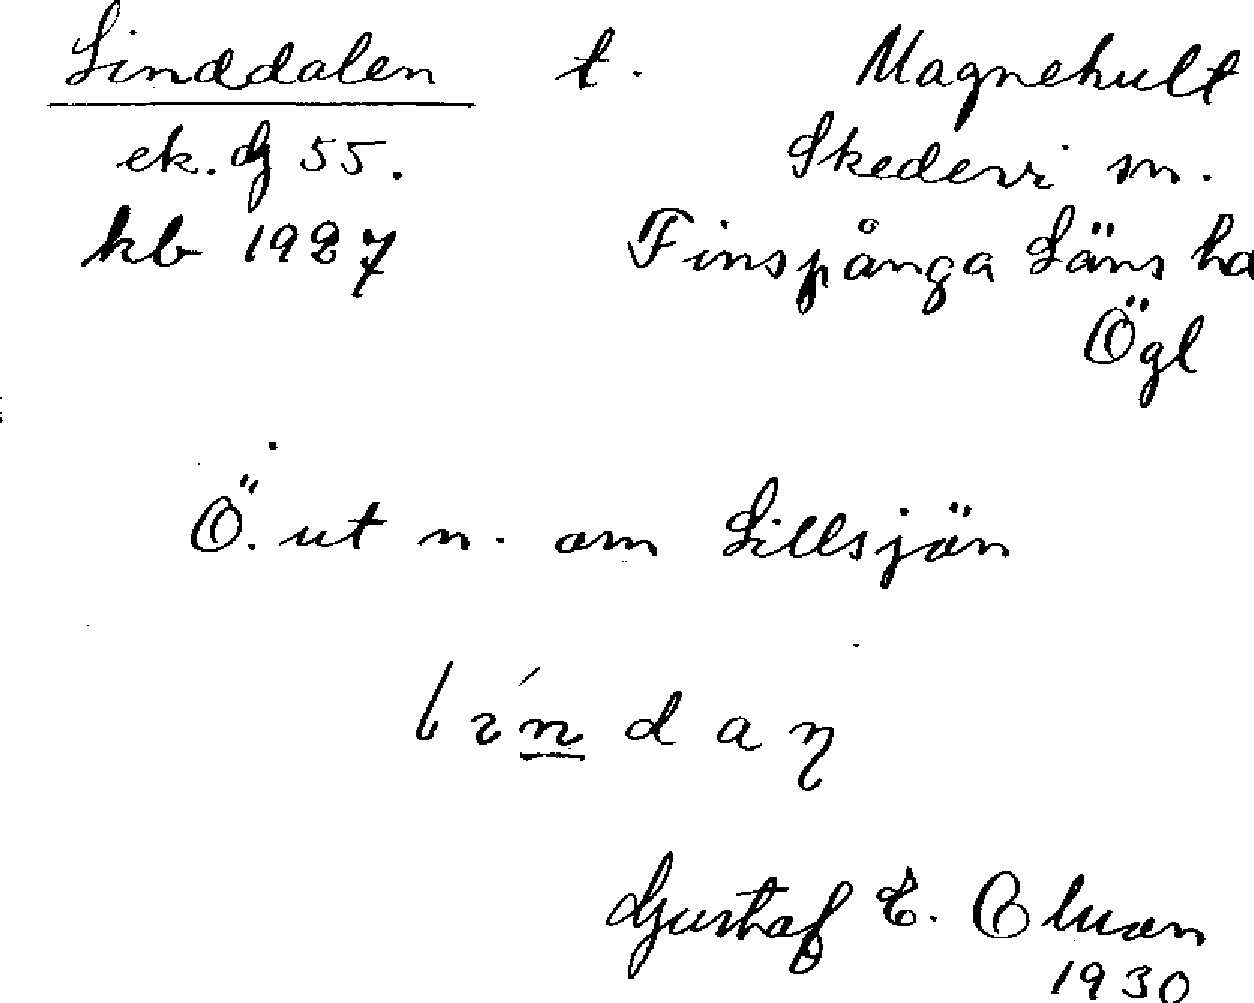 Linddalen t. Magnehult
ek. G 55. Skedevi sn.
kb 1927 Finspånga Läns hd
Ögl
Ö. ut n. om Lillsjön
Gustaf E.
1930